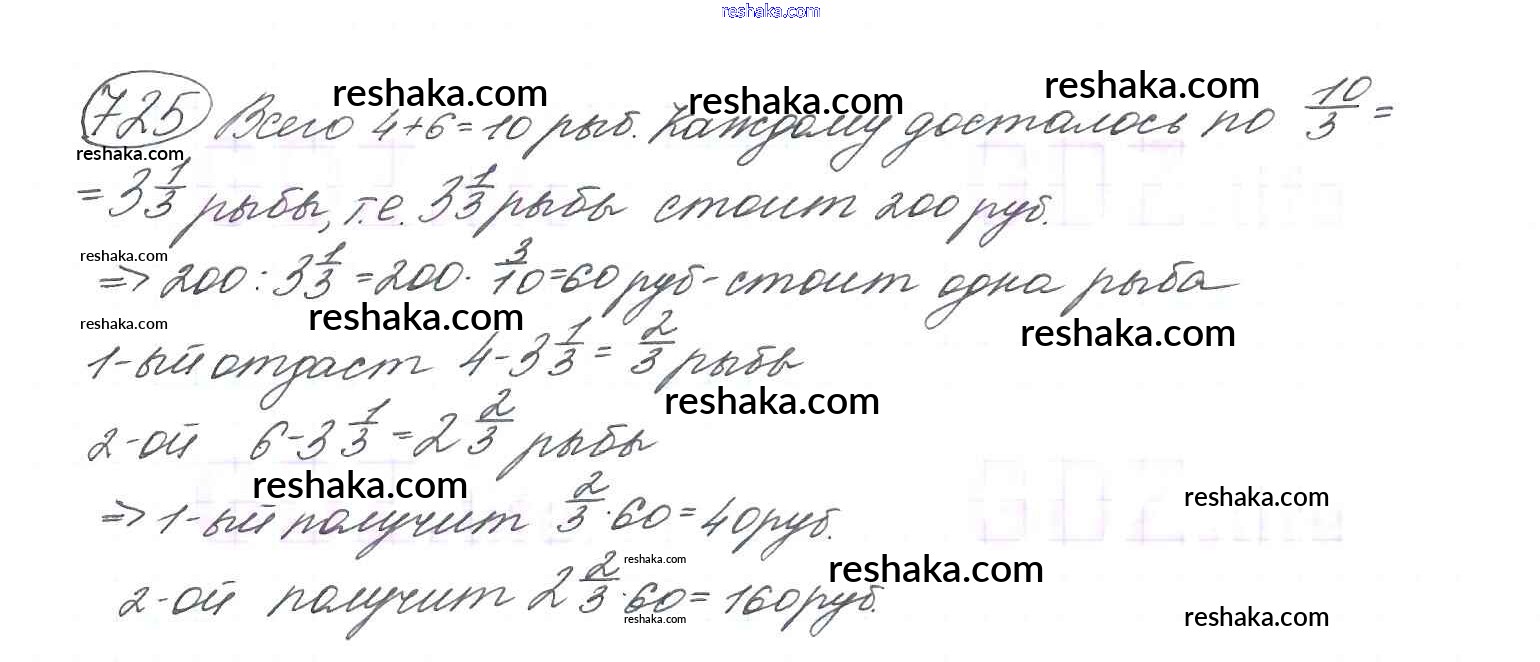 reshaka.com
reshaka.com reshaka.com reshaka.com
725 Всего 4+6=10 рыб. Каждому досталось по 10/3 =
reshaka.com
= 3 1/3 рыбы, т.е. 3 1/3 рыбы стоит 200 руб.
reshaka.com
=> 200 : 3 1/3 = 200 · 3/10 = 60 руб - стоит одна рыба
reshaka.com reshaka.com reshaka.com
1-ый отдаст 4 - 3 1/3 = 2/3 рыбы
reshaka.com
2-ой 6 - 3 1/3 = 2 2/3 рыбы
reshaka.com reshaka.com
=> 1-ый получит 2/3 · 60 = 40 руб.
reshaka.com reshaka.com
2-ой получит 2 2/3 · 60 = 160 руб.
reshaka.com reshaka.com